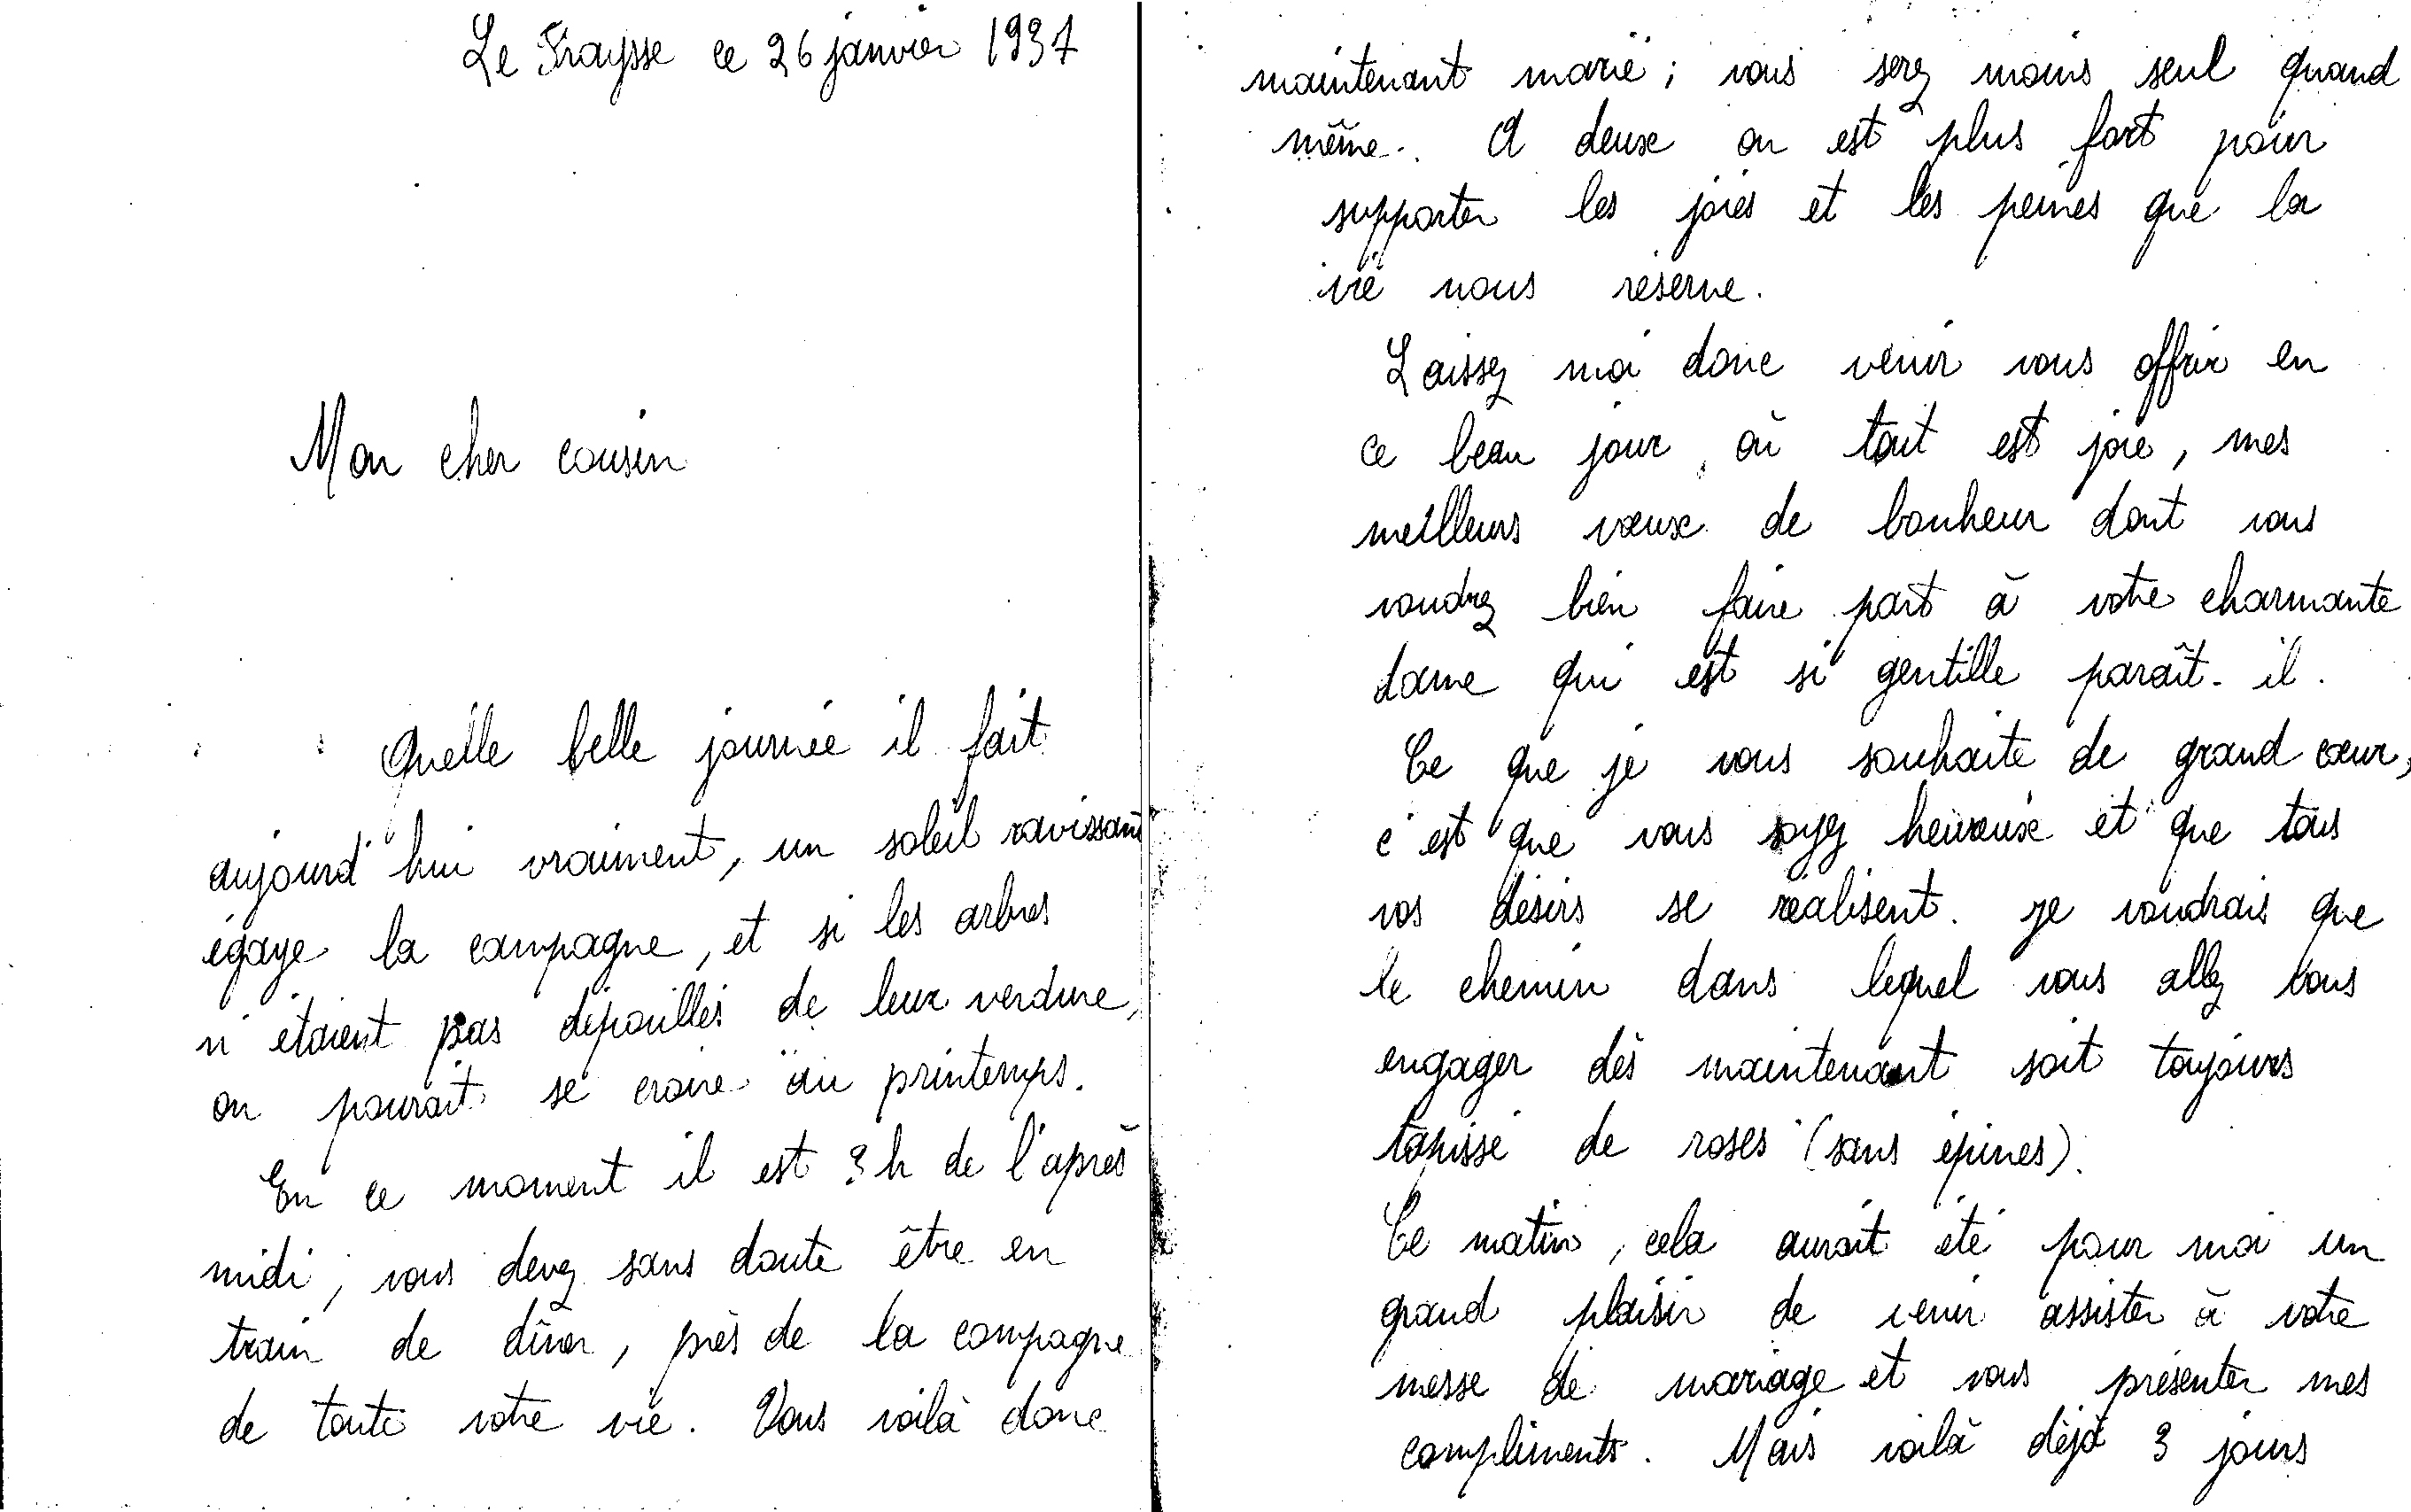 Le Fraysse ce 26 janvier 1937
Mon cher cousin
Quelle belle journée il fait
aujourd'hui vraiment, un soleil ravissant
égaye la campagne, et si les arbres
n'étaient pas dépouillés de leur verdure,
on pourait se croire au printemps.
En ce moment il est 3 h de l'après
midi, vous devez sans doute être en
train de dîner, près de la compagne
de toute votre vie. Vous voilà donc
maintenant marié ; vous serez moins seul quand
même. A deux on est plus fort pour
supporter les joies et les peines que la
vie nous réserve.
Laissez moi donc venir vous offrir en
ce beau jour, où tout est joie, mes
meilleurs vœux de bonheur dont vous
voudrez bien faire part à votre charmante
dame qui est si gentille paraît-il.
Ce que je vous souhaite de grand cœur,
c'est que vous soyez heureux et que tous
vos désirs se réalisent. Je voudrais que
le chemin dans lequel vous allez vous
engager dès maintenant soit toujours
tapissé de roses (sans épines).
Ce matin, cela aurait été pour moi un
grand plaisir de venir assister à votre
messe de mariage et vous présenter mes
compliments. Mais voilà déjà 3 jours